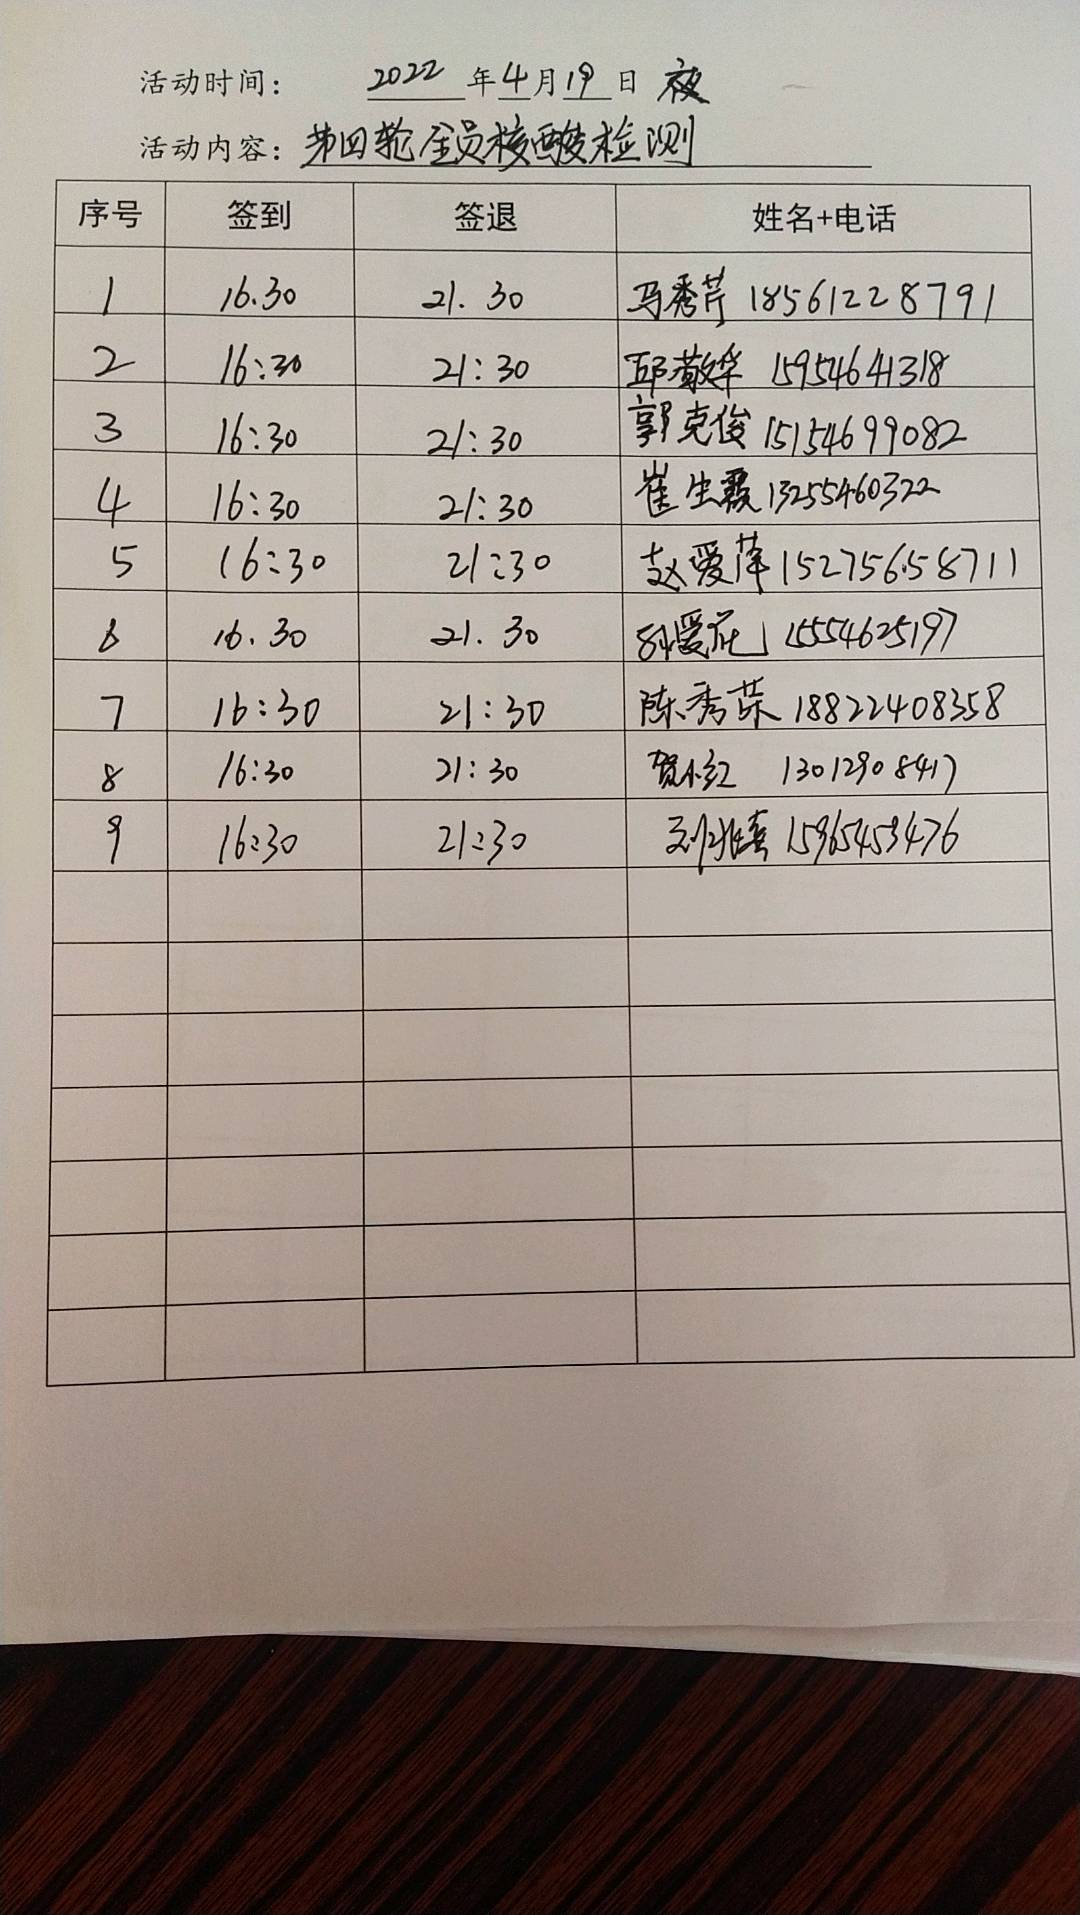 活动时间： 2022 年 4 月 19 日 夜
活动内容：第四轮全员核酸检测
序号 签到 签退 姓名+电话
1 16.30 21.30 马秀芹 18561228791
2 16:30 21:30 邱敬华 15954641318
3 16:30 21:30 郭克俊 15154699082
4 16:30 21:30 崔生霞 13255460322
5 16:30 21:30 赵爱萍 15275658711
6 16.30 21.30 孙爱花 15554625197
7 16:30 21:30 陈秀荣 18822408358
8 16:30 21:30 贺小红 13012908417
9 16:30 21:30 15965453476